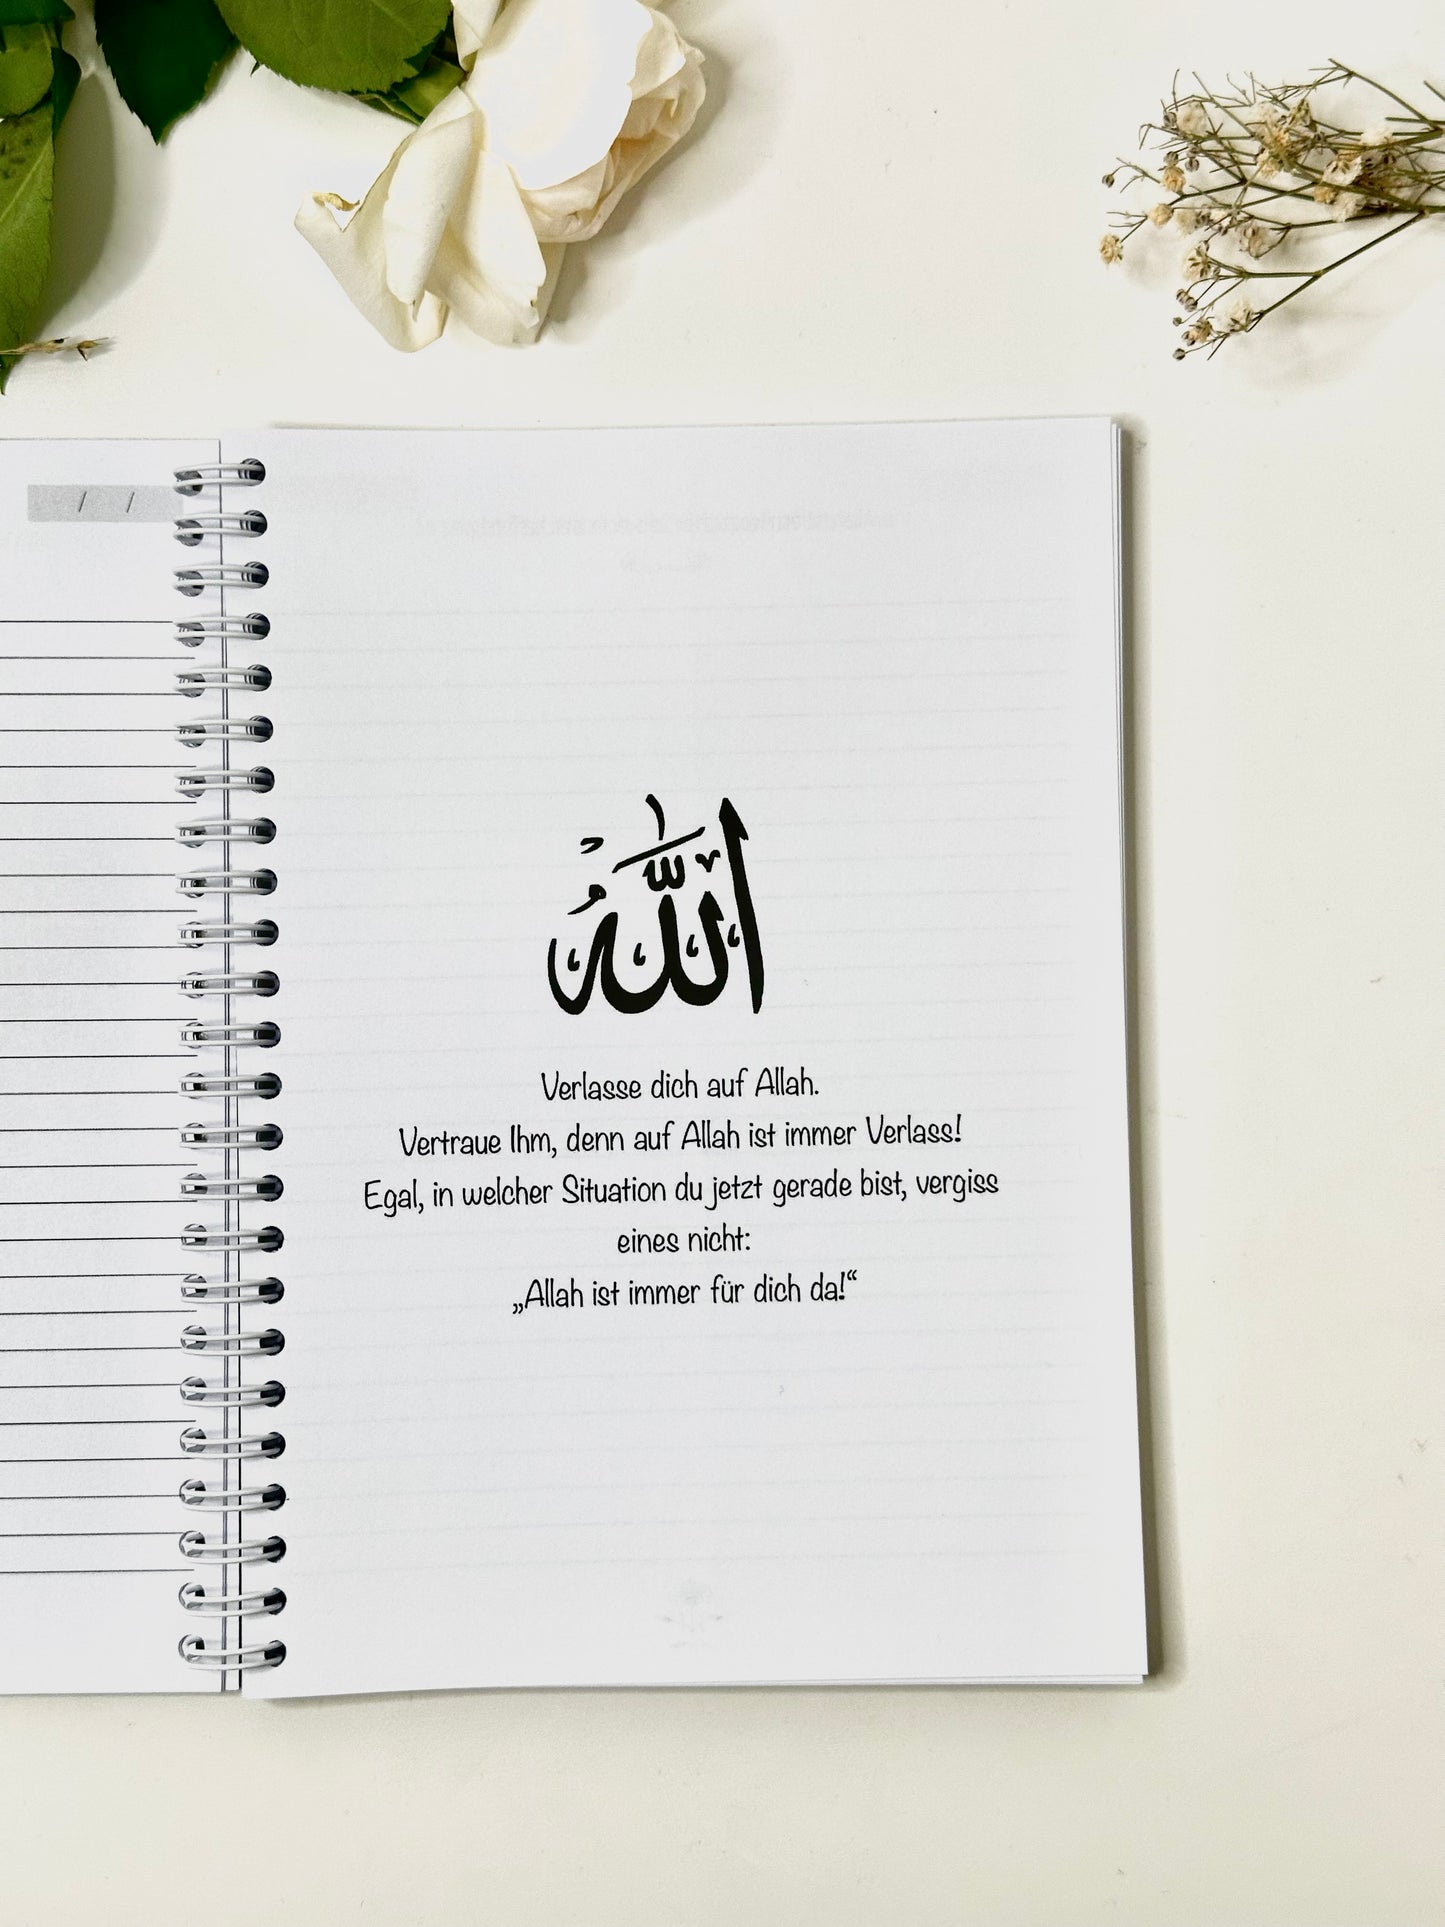 / /
اللّٰهُ
Verlasse dich auf Allah.
Vertraue Ihm, denn auf Allah ist immer Verlass!
Egal, in welcher Situation du jetzt gerade bist, vergiss
eines nicht:
„Allah ist immer für dich da!“